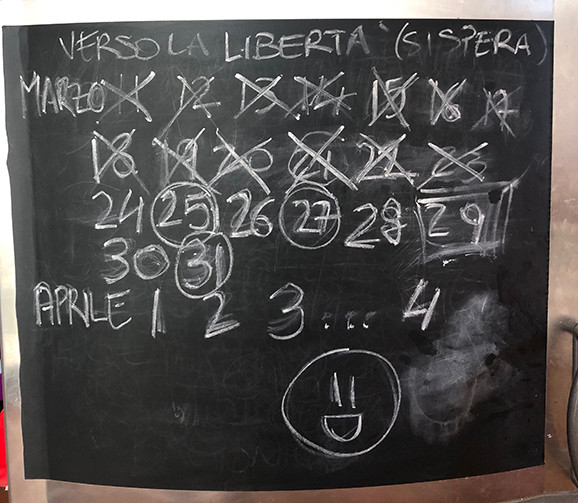 VERSO LA LIBERTA' (SI SPERA)
MARZO 11 12 13 14 15 16 17
18 19 20 21 22 23
24 25 26 27 28 29
30 31
APRILE 1 2 3 .... 4